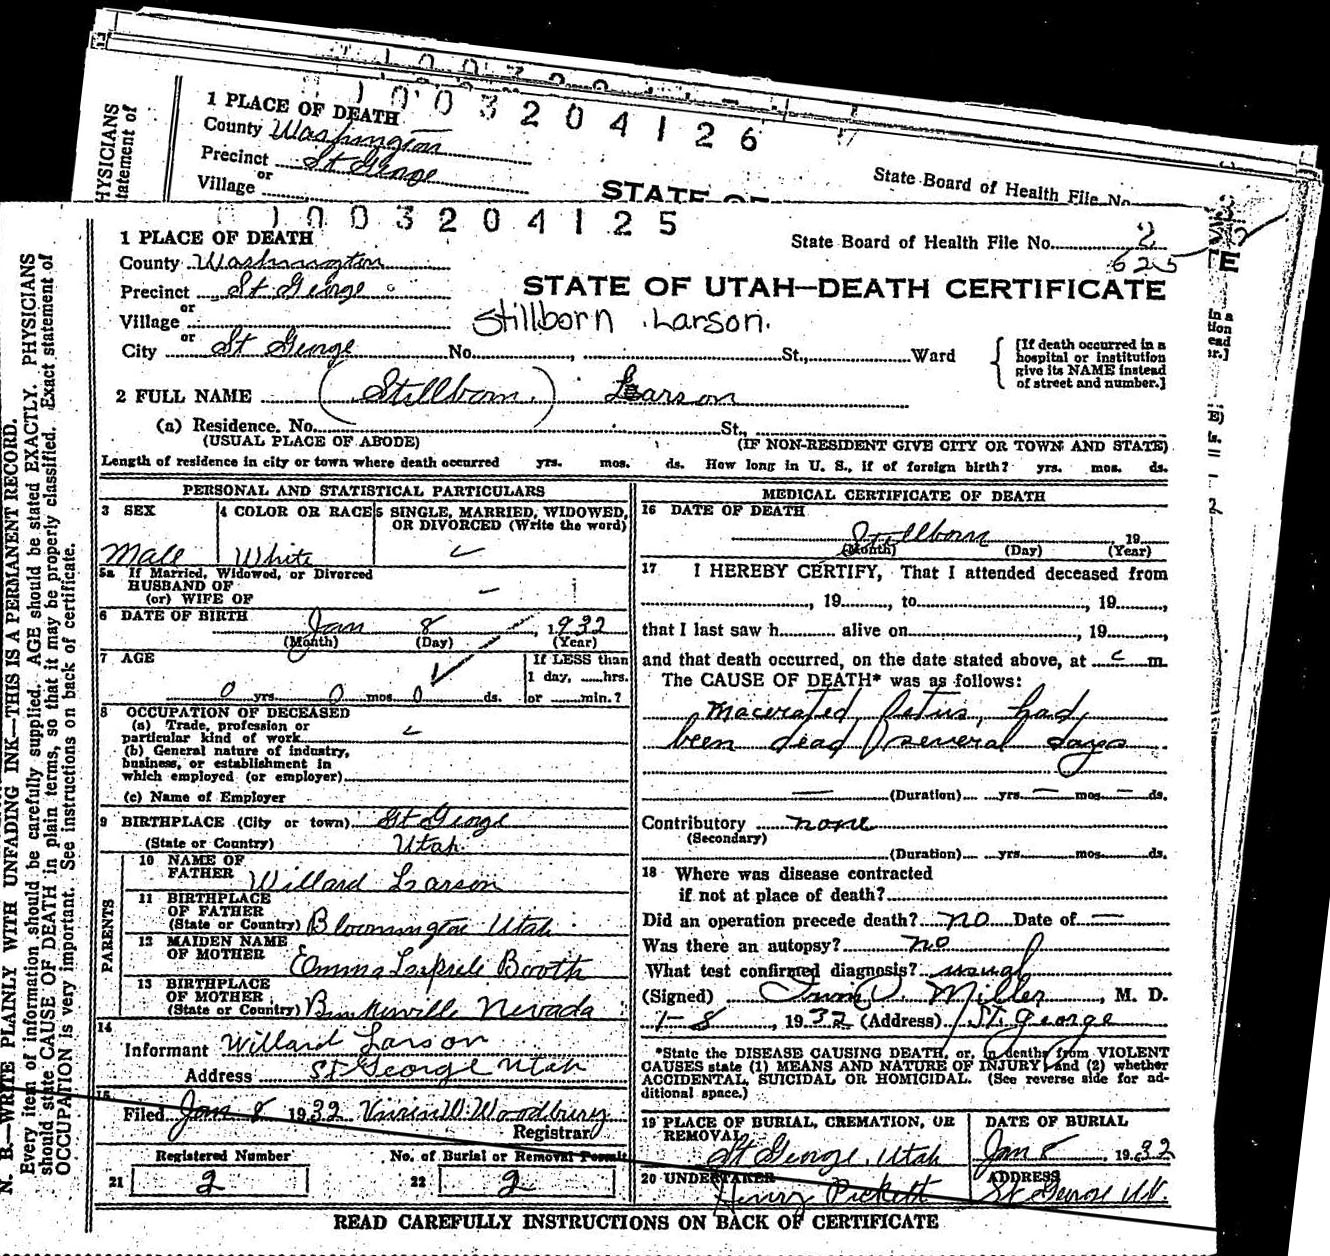 1 PLACE OF DEATH
0 0 3 2 0 4 1 2 6
County Washington
Precinct St George
or
Village
State Board of Health File No.
STATE OF
HYSICIANS
tatement of
1 0 0 3 2 0 4 1 2 5
1 PLACE OF DEATH
State Board of Health File No. 2
625
County Washington
Precinct St George
STATE OF UTAH—DEATH CERTIFICATE
or
Village
Stillborn Larson.
or
City St George No. , St., Ward
[If death occurred in a hospital or institution give its NAME instead of street and number.]
2 FULL NAME (Stillborn) Larson
(a) Residence. No. St.,
(USUAL PLACE OF ABODE) (IF NON-RESIDENT GIVE CITY OR TOWN AND STATE)
Length of residence in city or town where death occurred yrs. mos. ds. How long in U. S., if of foreign birth? yrs. mos. ds.
PERSONAL AND STATISTICAL PARTICULARS
3 SEX 4 COLOR OR RACE 5 SINGLE, MARRIED, WIDOWED, OR DIVORCED (Write the word)
Male White
5a If Married, Widowed, or Divorced
HUSBAND OF
(or) WIFE OF —
6 DATE OF BIRTH
Jan 8, 1932
(Month) (Day) (Year)
7 AGE
If LESS than
1 day, hrs.
0 yrs. 0 mos. 0 ds. or min.?
8 OCCUPATION OF DECEASED
(a) Trade, profession or
particular kind of work
(b) General nature of industry,
business, or establishment in
which employed (or employer)
(c) Name of Employer
9 BIRTHPLACE (City or town) St George
(State or Country) Utah
PARENTS
10 NAME OF
FATHER Willard Larson
11 BIRTHPLACE
OF FATHER
(State or Country) Bloomington Utah
12 MAIDEN NAME
OF MOTHER Emma Booth
13 BIRTHPLACE
OF MOTHER
(State or Country) Bunkerville Nevada
14
Informant Willard Larson
Address St George Utah
15
Filed Jan 8 1932 W. Woodbury
Registrar
Registered Number No. of Burial or Removal Permit
21 2 22 2
MEDICAL CERTIFICATE OF DEATH
16 DATE OF DEATH
Stillborn 19
(Month) (Day) (Year)
17 I HEREBY CERTIFY, That I attended deceased from
, 19 , to , 19 ,
that I last saw h alive on , 19 ,
and that death occurred, on the date stated above, at m.
The CAUSE OF DEATH* was as follows:
Macerated fetus, had
been dead several days
— (Duration) yrs. — mos. — ds.
Contributory none
(Secondary)
(Duration) yrs. mos. ds.
18 Where was disease contracted
if not at place of death?
Did an operation precede death? no Date of —
Was there an autopsy? no
What test confirmed diagnosis?
(Signed) Miller, M. D.
1-8, 1932 (Address) St. George
*State the DISEASE CAUSING DEATH, or, in deaths from VIOLENT
CAUSES state (1) MEANS AND NATURE OF INJURY, and (2) whether
ACCIDENTAL, SUICIDAL OR HOMICIDAL. (See reverse side for ad-
ditional space.)
19 PLACE OF BURIAL, CREMATION, OR REMOVAL DATE OF BURIAL
St George, Utah Jan 8 1932
20 UNDERTAKER ADDRESS
Henry Pickett St George Ut.
READ CAREFULLY INSTRUCTIONS ON BACK OF CERTIFICATE
N. B.—WRITE PLAINLY WITH UNFADING INK—THIS IS A PERMANENT RECORD.
Every item of information should be carefully supplied. AGE should be stated EXACTLY. PHYSICIANS
should state CAUSE OF DEATH in plain terms, so that it may be properly classified. Exact statement of
OCCUPATION is very important. See instructions on back of certificate.